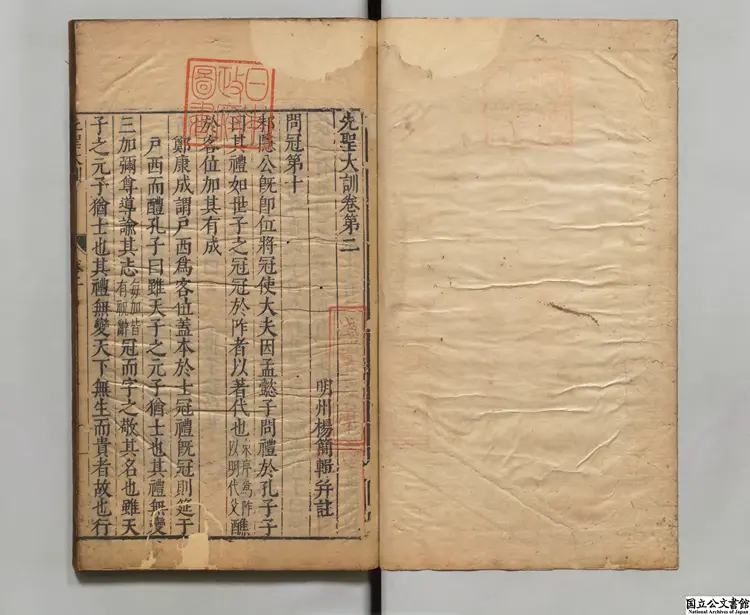 先聖大訓卷第二
明州楊簡輯并註
問冠第十
邾隱公既即位將冠使大夫因孟懿子問禮於孔子子
曰其禮如世子之冠冠於阼者以著代也以明代父醮
於客位加其有成
鄭康成謂戶西爲客位蓋本於士冠禮既冠則筵于
戶西而醴孔子曰雖天子之元子猶士也其禮無變
三加彌尊導諭其志每加皆有祝辭冠而字之敬其名也雖天
子之元子猶士也其禮無變天下無生而貴者故也行
日本政府圖書
国立公文書館
National Archives of Japan